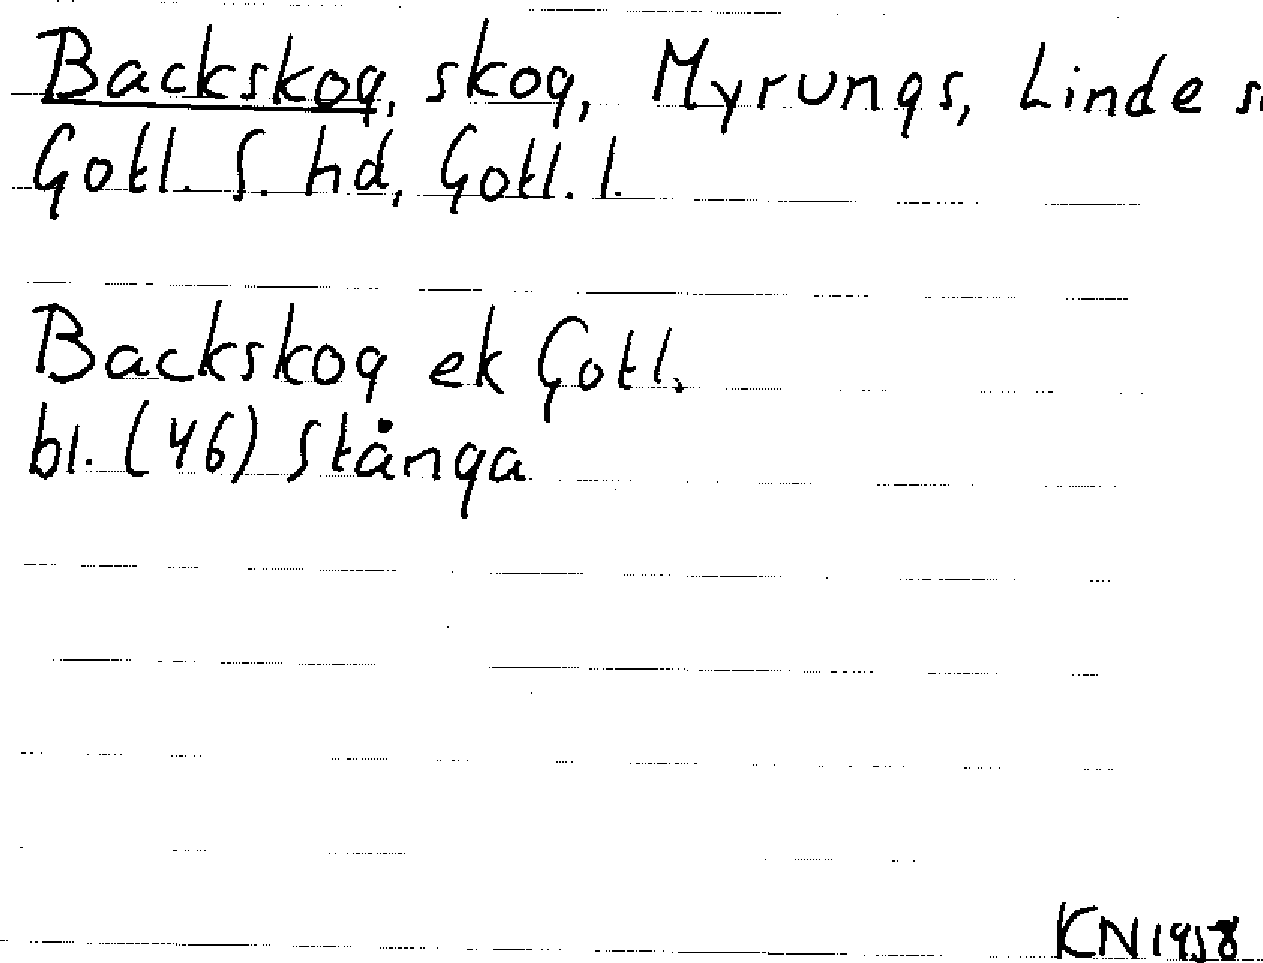 Backskog, skog, Myrungs, Linde s
Gotl. S. hd, Gotl. l.
Backskog ek Gotl.
bl. (46) Stånga
KN 1958